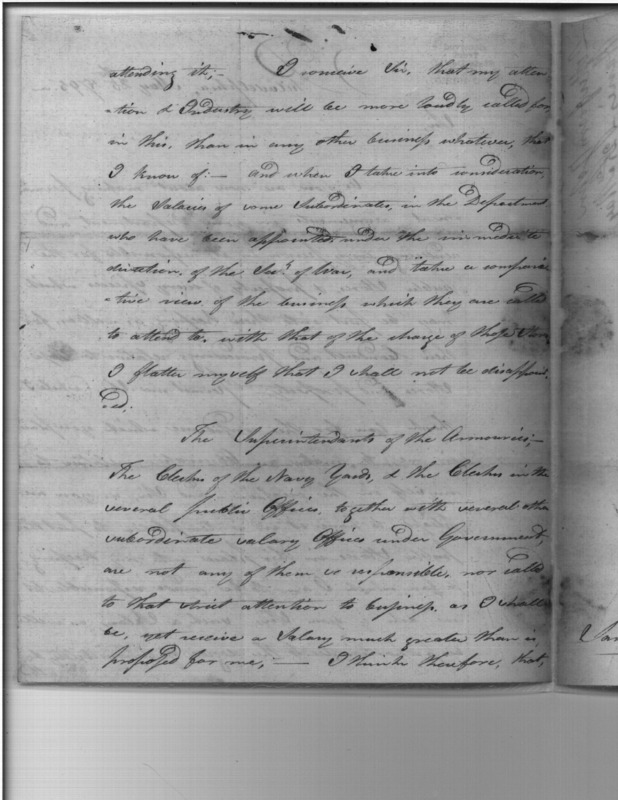 attending it;- I conceive Sir, that my atten-
-tion & Industry will be more loudly called for,
in this, than in any other business whatever, that
I know of:- and when I take into consideration,
the Salaries of some Subordinates, in the Department
who have been appointed, under the immediate
direction, of the Secy of War, and take a compara-
-tive view, of the business which they are called
to attend to, with that of the charge of these Stores
I flatter myself that I shall not be disappoint
-ed.
The Superintendants of the Armouries;-
The Clerks of the Navy Yards, & the Clerks in the
several public Offices, together with several other
subordinate salary Offices under Government,
are not any of them so responsible, nor called
to that strict attention to business, as I shall
be, yet receive a Salary much greater than is
proposed for me, - I think therefore, that,